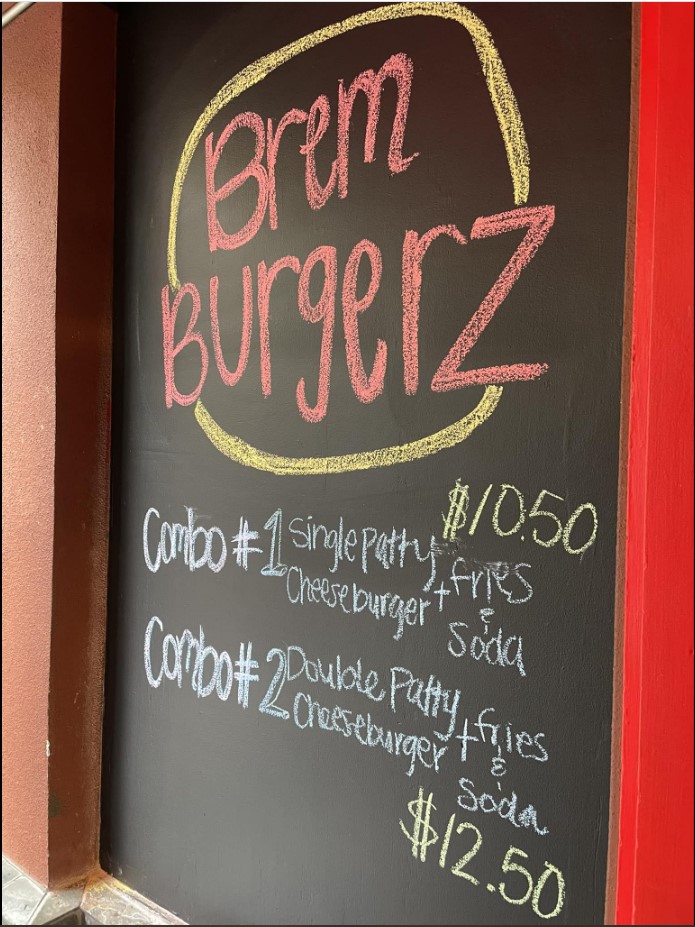 Brem
BurgerZ
$10.50
Combo #1 Single Patty
Cheeseburger + fries
&
Soda
Combo #2 Double Patty
Cheeseburger + fries
&
Soda
$12.50